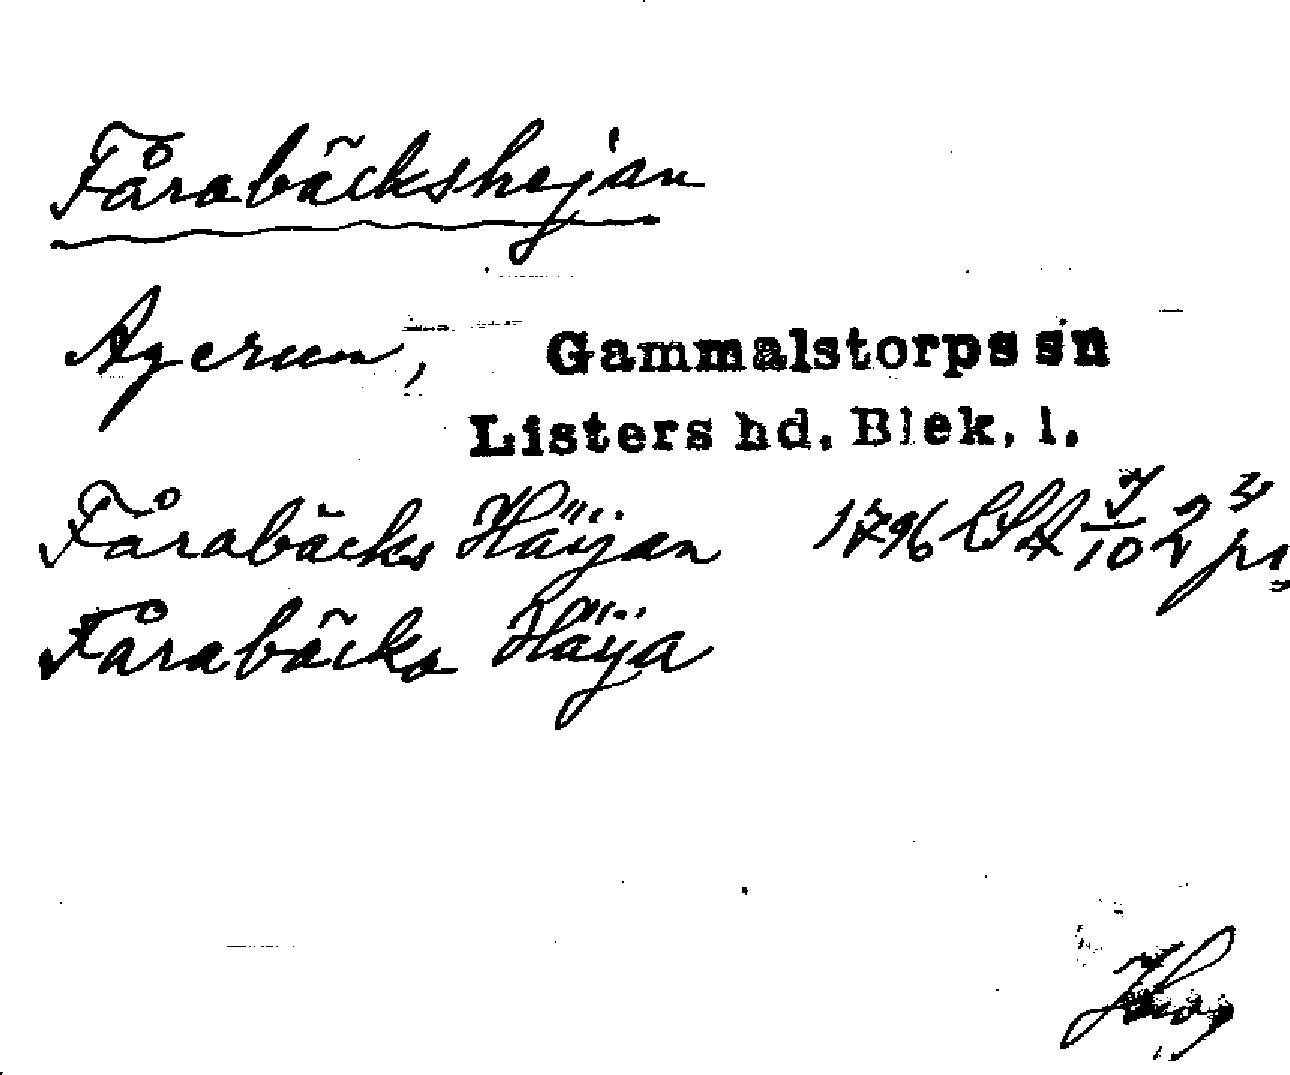 Fårabäckshejan
Agerum, Gammalstorps sn
Listers hd. Blek. l.
Fårabäcks Häÿan 1796 LSA
Fårabäcks Häÿa